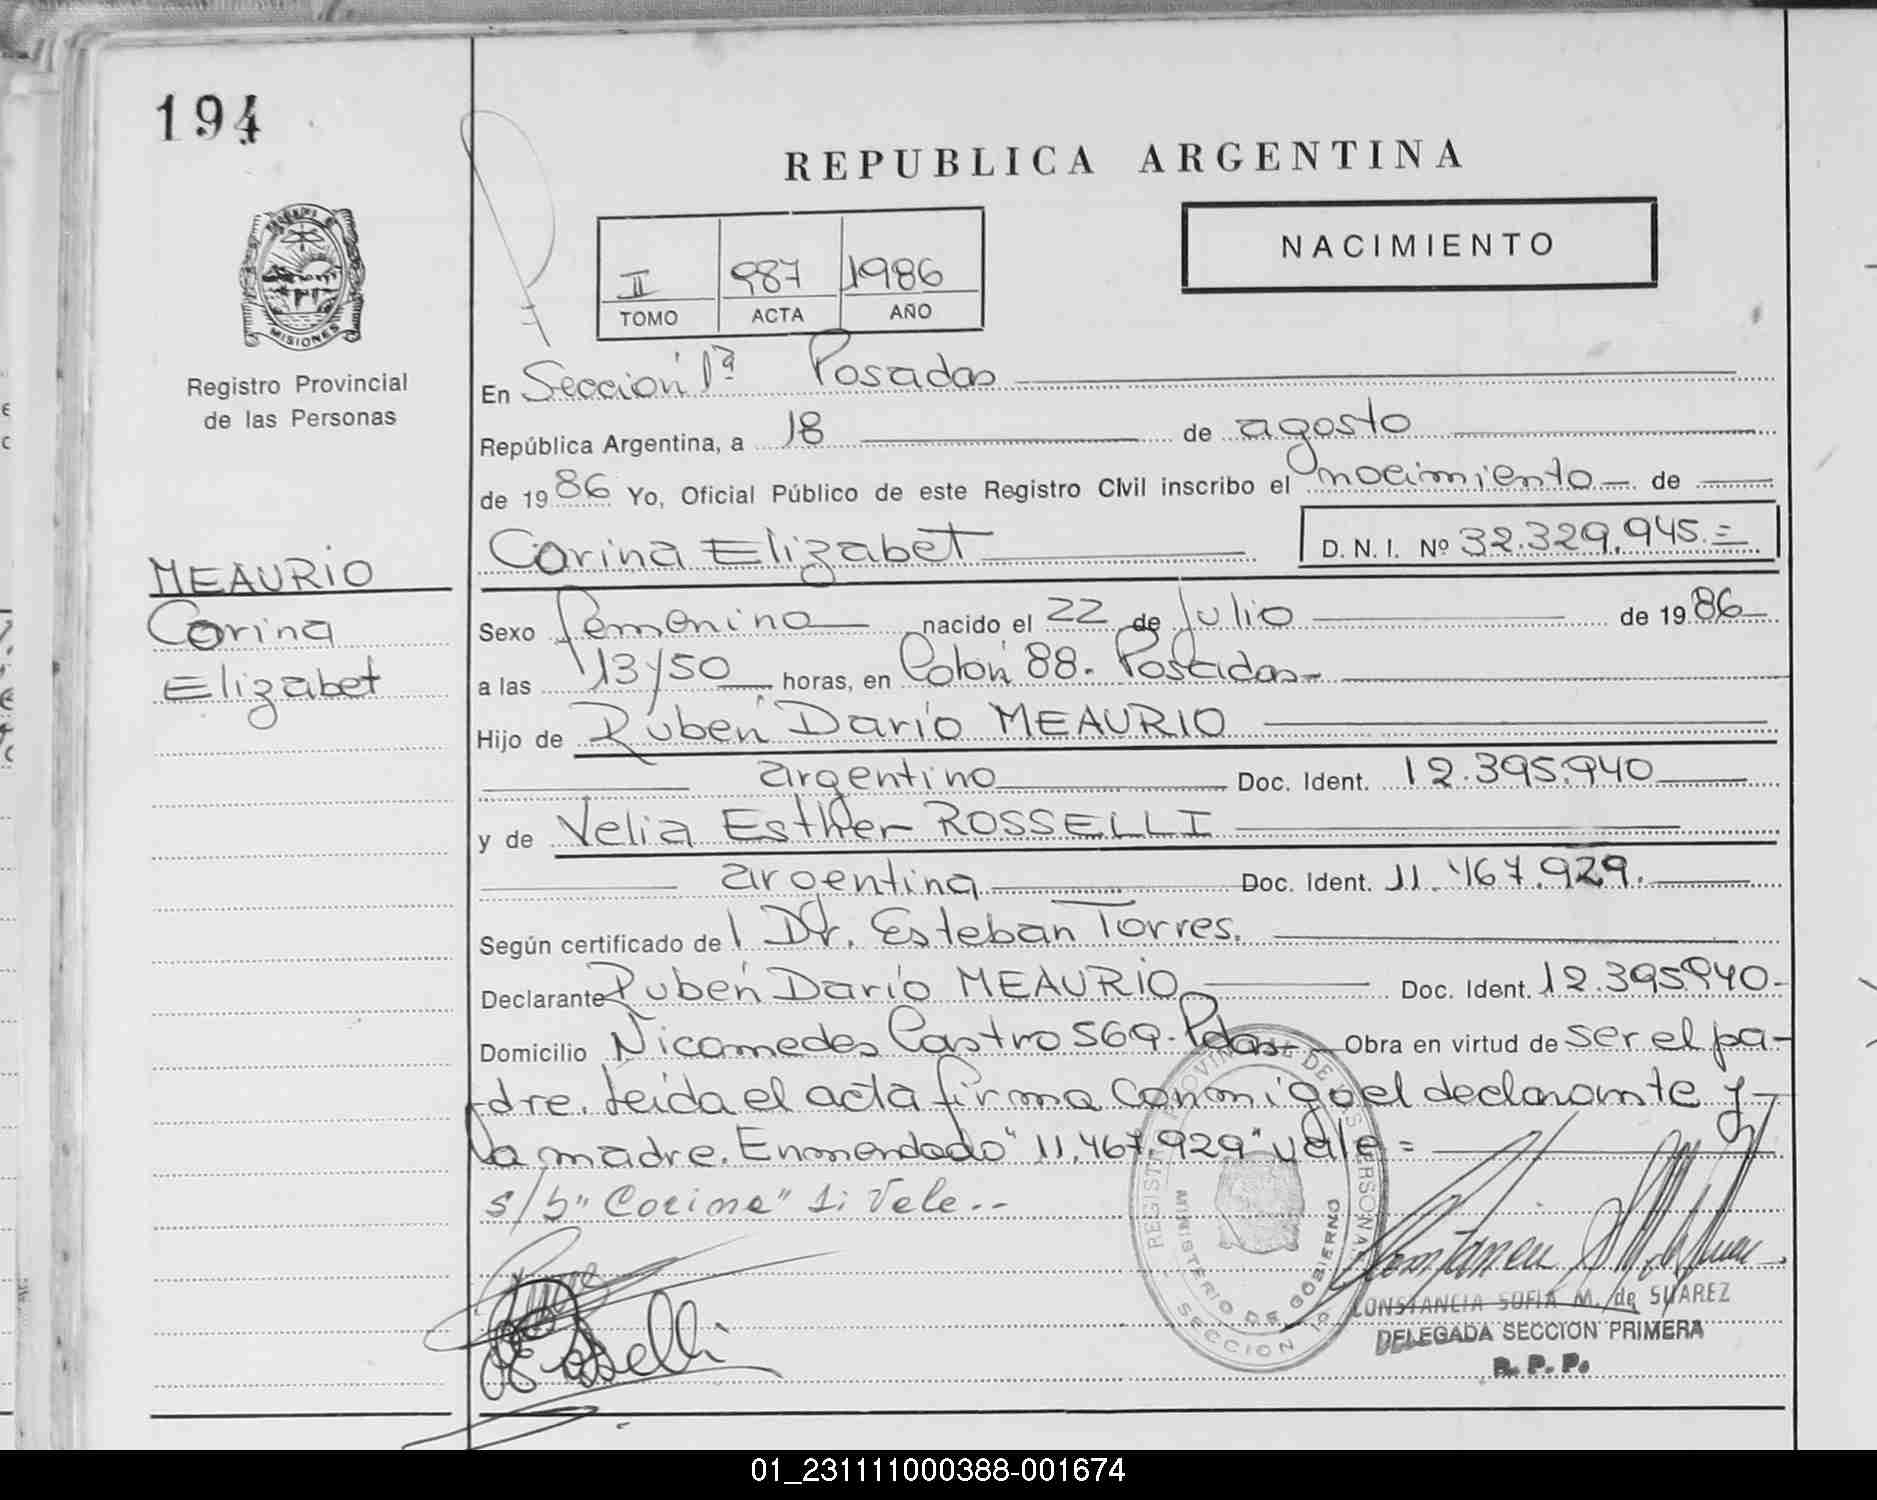 194
REPUBLICA ARGENTINA
NACIMIENTO
II 987 1986
TOMO ACTA AÑO
MISIONES
Registro Provincial
de las Personas
MEAURIO
Corina
Elizabet
En Sección 1ª Posadas
República Argentina, a 18 de agosto
de 1986 Yo, Oficial Público de este Registro Civil inscribo el nacimiento de
Corina Elizabet D. N. I. Nº 32.329.945.=
Sexo femenino nacido el 22 de Julio de 1986
a las 13y50 horas, en Colón 88. Posadas
Hijo de Rubén Darío MEAURIO
argentino Doc. Ident. 12.395.940
y de Velia Esther ROSSELLI
argentina Doc. Ident. 11.467.929.
Según certificado del Dr. Esteban Torres.
Declarante Rubén Darío MEAURIO Doc. Ident. 12.395940-
Domicilio Nicomedes Castro 569. Pdas Obra en virtud de ser el pa-
dre. Leída el acta firma conmigo el declarante y
la madre. Enmendado "11.467.929" vale =
s/b "Corina" 1: Vale.--
REGISTRO PROVINCIAL DE LAS PERSONAS
MINISTERIO DE GOBIERNO
SECCION 1ª
Rosselli
CONSTANCIA SOFIA M. de SUAREZ
DELEGADA SECCION PRIMERA
R. P. P.
01_231111000388-001674